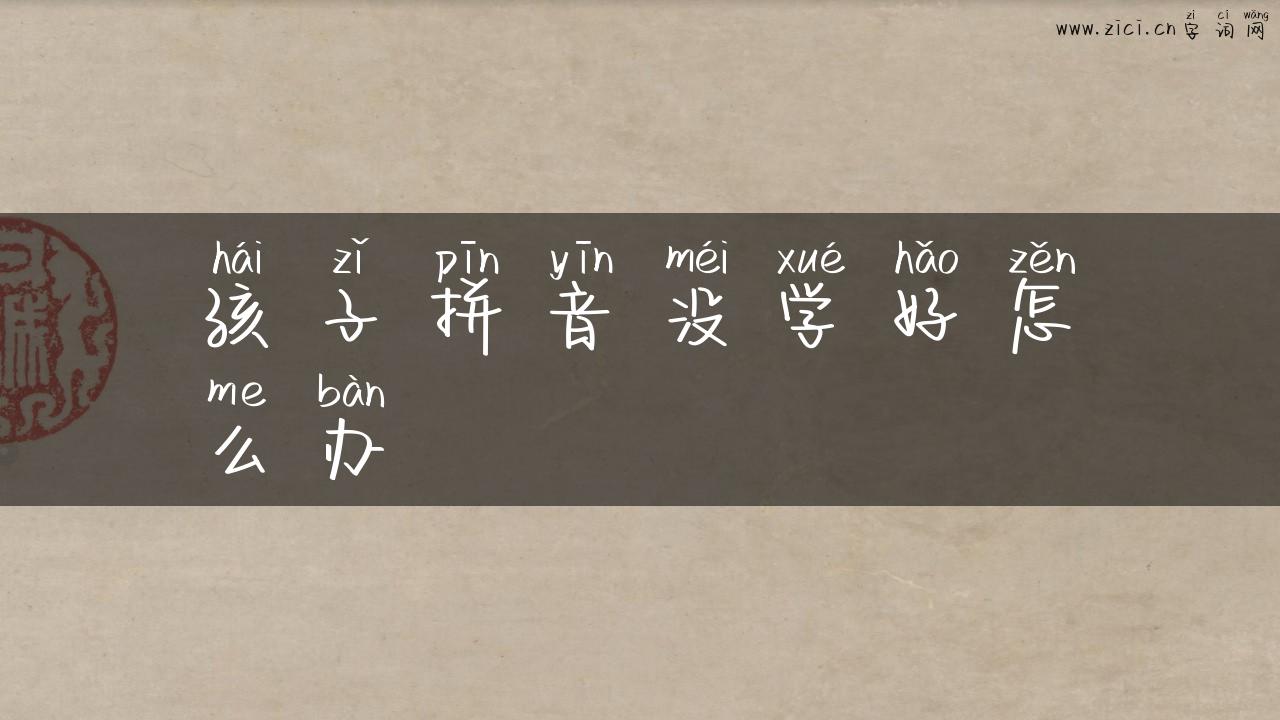 zì cí wǎng
www.zici.cn 字 词 网
hái zǐ pīn yīn méi xué hǎo zěn
孩 子 拼 音 没 学 好 怎
me bàn
么 办